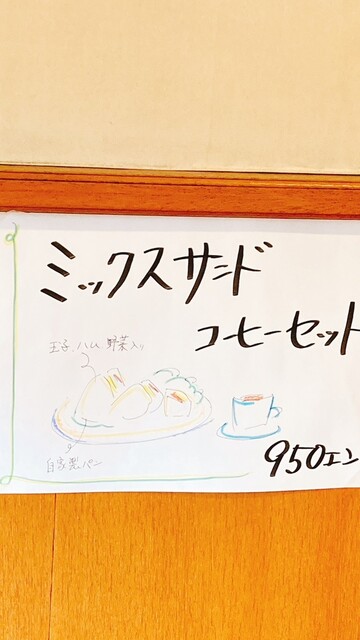 ミックスサンド
コーヒーセット
玉子、ハム 野菜入り
自家製パン
950エン